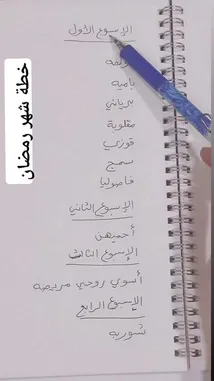 خطة شهر رمضان
الإسبوع الأول
باميه
برياني
مقلوبة
قوزي
سمج
فاصوليا
الإسبوع الثاني
أحميهن
الإسبوع الثالث
أسوي روحي مريضه
الإسبوع الرابع
شوربه